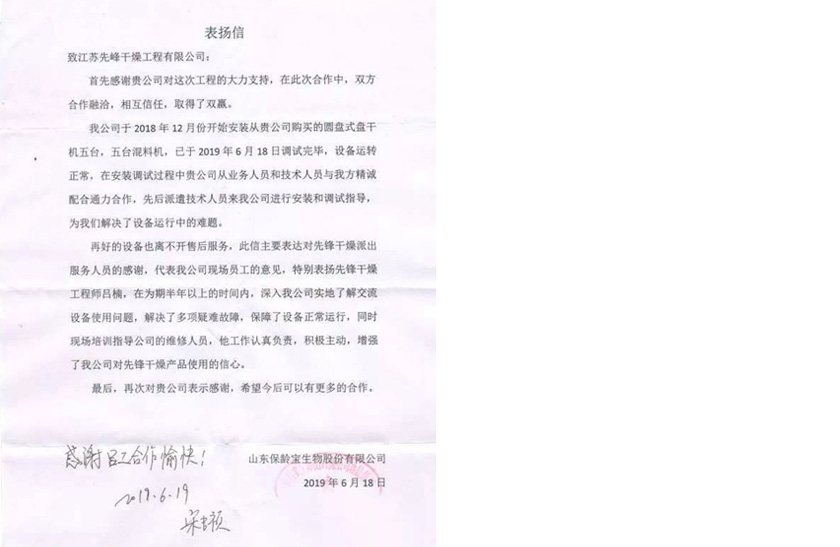 表扬信
致江苏先峰干燥工程有限公司：
首先感谢贵公司对这次工程的大力支持，在此次合作中，双方
合作融洽，相互信任，取得了双赢。
我公司于 2018 年 12 月份开始安装从贵公司购买的圆盘式盘干
机五台，五台混料机，已于 2019 年 6 月 18 日调试完毕，设备运转
正常，在安装调试过程中贵公司从业务人员和技术人员与我方精诚
配合通力合作，先后派遣技术人员来我公司进行安装和调试指导，
为我们解决了设备运行中的难题。
再好的设备也离不开售后服务，此信主要表达对先锋干燥派出
服务人员的感谢，代表我公司现场员工的意见，特别表扬先锋干燥
工程师吕楠，在为期半年以上的时间内，深入我公司实地了解交流
设备使用问题，解决了多项疑难故障，保障了设备正常运行，同时
现场培训指导公司的维修人员，他工作认真负责，积极主动，增强
了我公司对先锋干燥产品使用的信心。
最后，再次对贵公司表示感谢，希望今后可以有更多的合作。
感谢吕工合作愉快！
山东保龄宝生物股份有限公司
2019 年 6 月 18 日
2019.6.19